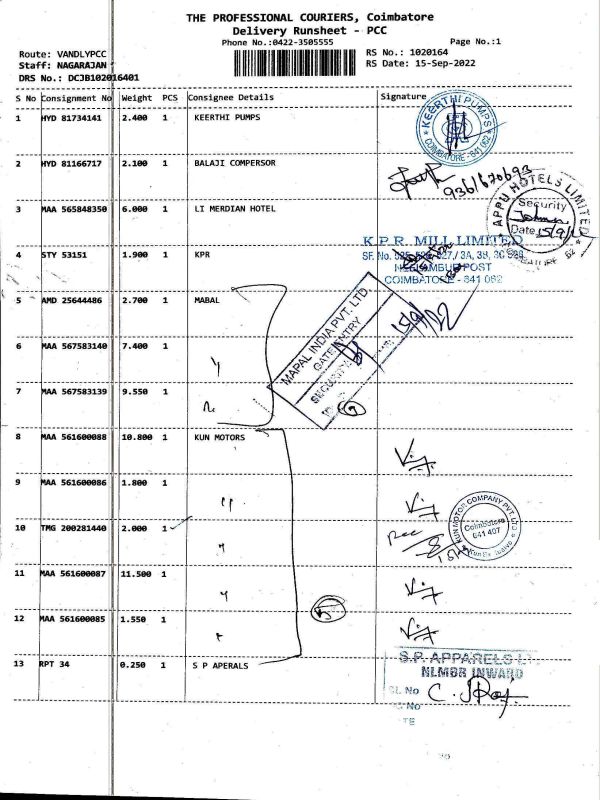 THE PROFESSIONAL COURIERS, Coimbatore
Delivery Runsheet - PCC
Phone No.:0422-3505555 Page No.:1
Route: VANDLYPCC RS No.: 1020164
Staff: NAGARAJAN RS Date: 15-Sep-2022
DRS No.: DCJB102016401
S No Consignment No Weight PCS Consignee Details Signature
1 HYD 81734141 2.400 1 KEERTHI PUMPS
KEERTHI PUMPS
COIMBATORE - 641 062
2 HYD 81166717 2.100 1 BALAJI COMPERSOR
9361620693
3 MAA 565848350 6.000 1 LI MERDIAN HOTEL
APPU HOTELS LIMITED
Security
Date 15/9/
4 STY 53151 1.900 1 KPR
K.P.R. MILL LIMITED
SF. No. 525, 526, 527/ 3A, 3B, 3C 528
NEELAMBUR POST
COIMBATORE - 641 062
5 AMD 25644486 2.700 1 MABAL
MAPAL INDIA PVT. LTD.
GATE ENTRY
SECURITY
15/9/22
6 MAA 567583140 7.400 1 "
7 MAA 567583139 9.550 1
8 MAA 561600088 10.800 1 KUN MOTORS
9 MAA 561600086 1.800 1 "
KUN MOTOR COMPANY PVT LTD
Coimbatore
641 407
Kun Exclusive
10 TMG 200281440 2.000 1 "
Rec
11 MAA 561600087 11.500 1 "
12 MAA 561600085 1.550 1 "
5
13 RPT 34 0.250 1 S P APERALS
S.P. APPARELS
NLMBR INWARD
SL. No
No
TE